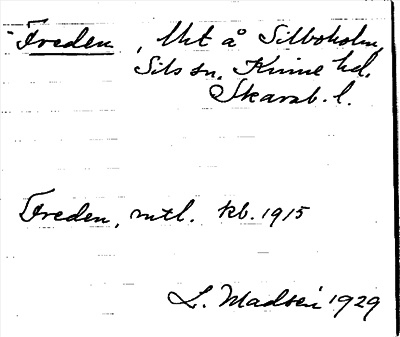 Freden, Uht å Silboholm,
Sils sn, Kinne hd.
Skarab. l.
Freden, mtl. kb. 1915
L. Madsén 1929